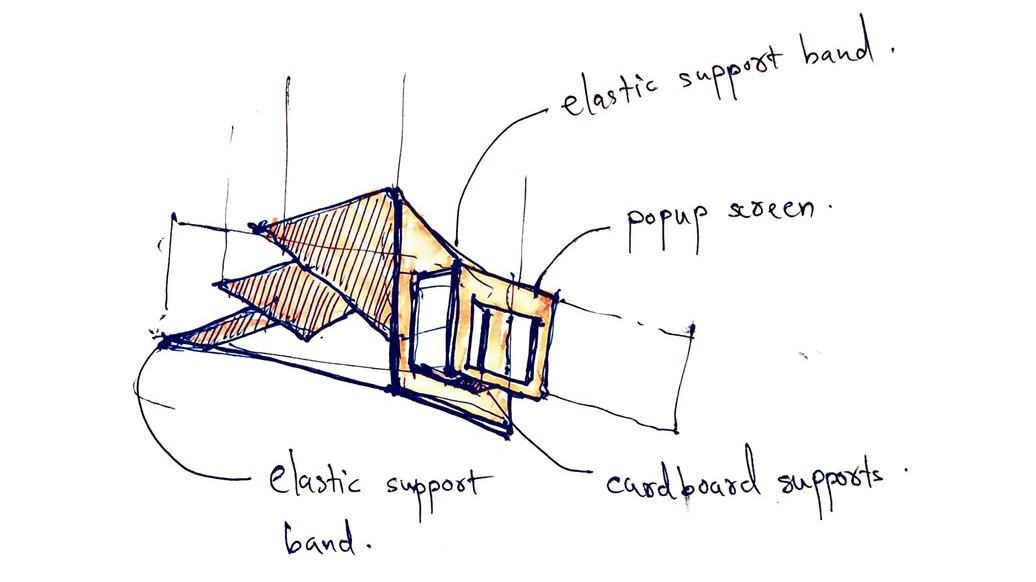 elastic support band.
popup screen.
elastic support
band.
cardboard supports.